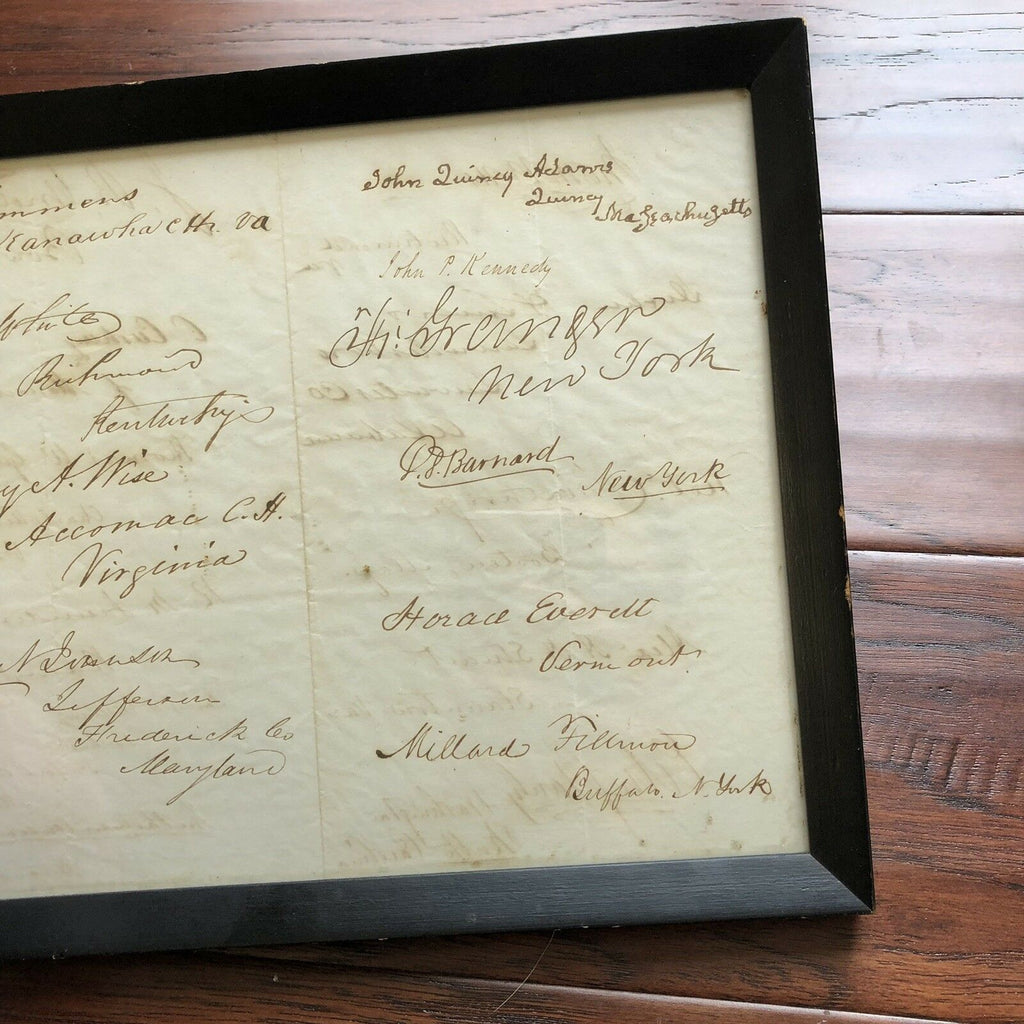 mmens
Kanawha C.H. Va
White
Richmond
Kentucky
y A. Wise
Accomac C.H.
Virginia
Johnson
Jefferson
Frederick Co
Maryland
John Quincy Adams
Quincy
Massachusetts
John P. Kennedy
Fr: Granger
New York
D.D. Barnard
New York
Horace Everett
Vermont
Millard Fillmore
Buffalo. N. York